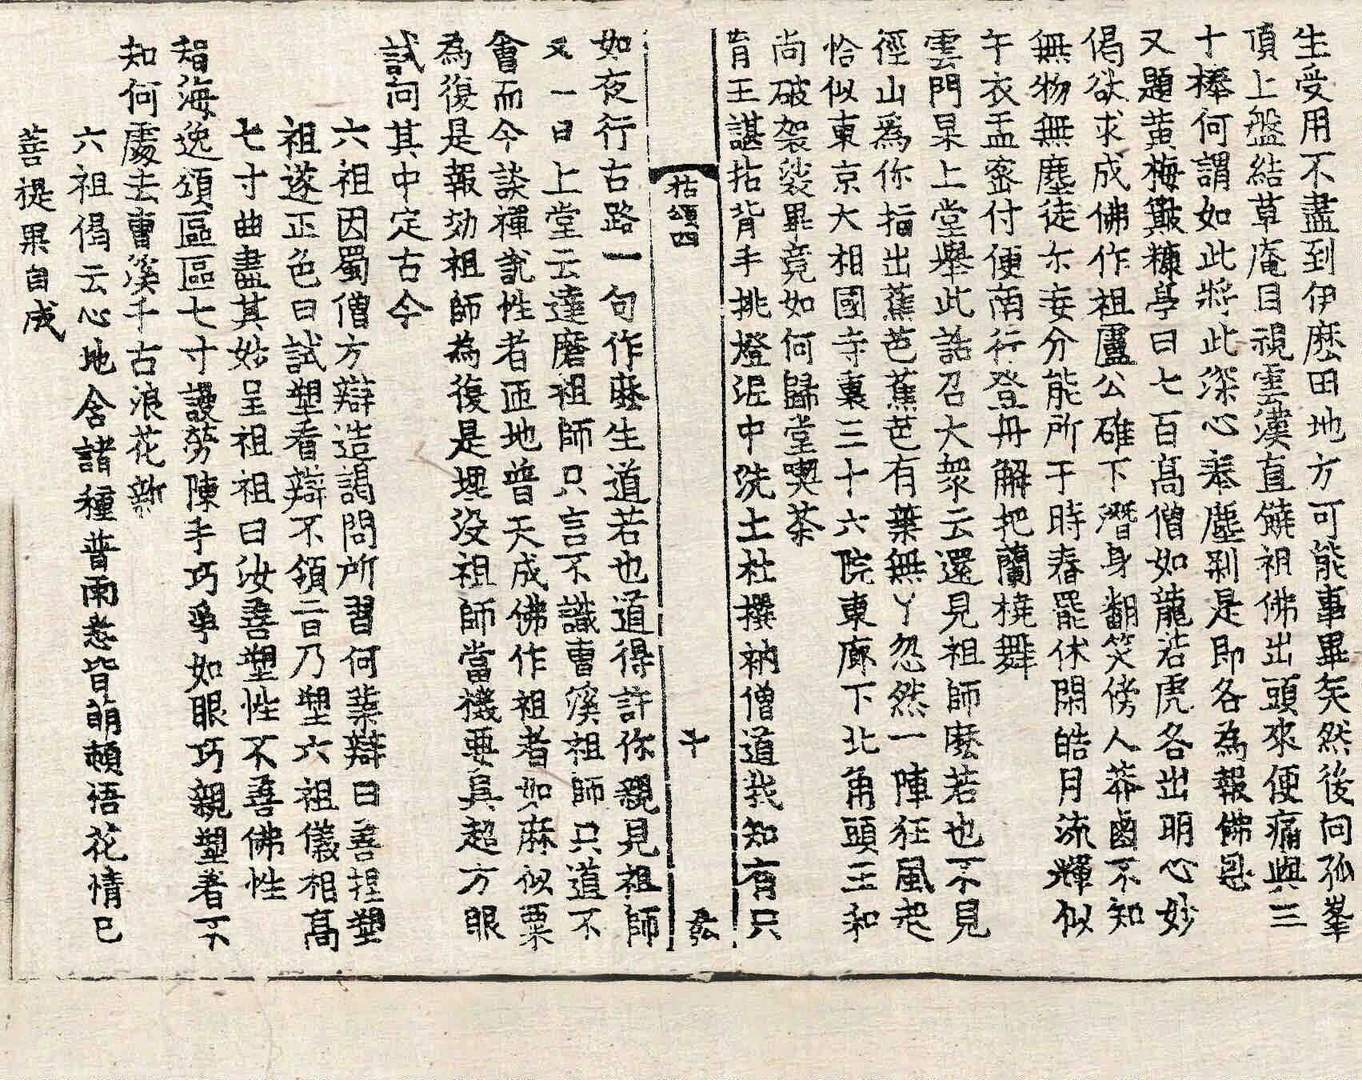 生受用不盡到伊麽田地方可能事畢矣然後向孤峯
頂上盤結草庵目視雲漢直饒祖佛出頭來便痛與三
十棒何謂如此將此深心奉塵刹是即各為報佛恩
又題黄梅簸糠亭曰七百高僧如龍若虎各出明心妙
偈欲求成佛作祖盧公碓下潛身翻笑傍人莽鹵不知
無物無塵徒尓妄分能所于時春罷休閑皓月流輝似
午衣盂密付便南行登舟解把蘭橈舞
雲門杲上堂舉此話召大衆云還見祖師麽若也不見
徑山為你指出蕉芭蕉芭有葉無丫忽然一陣狂風起
恰似東京大相國寺裏三十六院東廊下北角頭王和
尚破袈裟畢竟如何歸堂喫茶
育王諶拈背手挑燈泥中洗土杜撰衲僧道我知有只
拈頌四
十
弘
如夜行古路一句作麽生道若也道得許你親見祖師
又一日上堂云達磨祖師只言不識曹溪祖師只道不
會而今談禪說性者匝地普天成佛作祖者如麻似粟
為復是報効祖師為復是埋没祖師當機要具超方眼
試向其中定古今
六祖因蜀僧方辯造謁問所習何業辯曰善捏塑
祖遂正色曰試塑看辯不領二日乃塑六祖儀相高
七寸曲盡其妙呈祖祖曰汝善塑性不善佛性
智海逸頌區區七寸謾勞陳手巧爭如眼巧親塑者不
知何處去曹溪千古浪花新
六祖偈云心地含諸種普雨悉皆萌頓悟花情已
菩提果自成